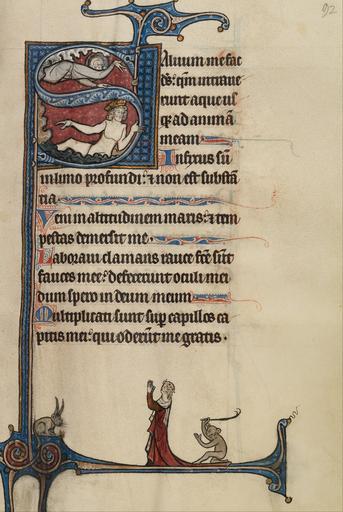 92
Aluum me fac
ds̄: qm̄ intraue
runt aque us
q̨ ad animā
meam
Infixus sū
in limo profundi: ⁊ non est substā
tia.
Veni in altitudinem maris: ⁊ tem
pestas demersit me.
Laboraui clamans rauce fc̄e sūt
fauces mee: defecerunt oculi mei
dum spero in deum meum
Multiplicati sunt sup̱ capillos ca
pitis mei: qui oderūt me gratis.